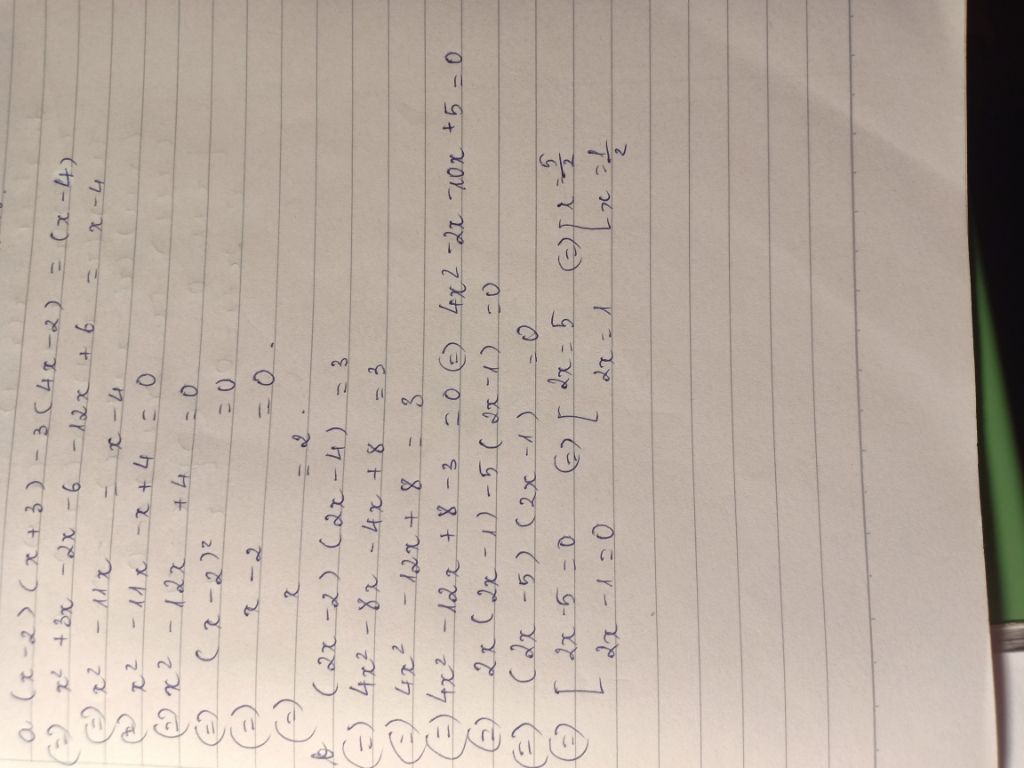 a (x-2)(x+3) - 3(4x-2) = (x-4)
(=) x² + 3x - 2x - 6 - 12x + 6 = x - 4
(=) x² - 11x = x - 4
(=) x² - 11x - x + 4 = 0
(=) x² - 12x + 4 = 0
(=) (x-2)² = 0
(=) x - 2 = 0.
(=) x = 2.
b (2x-2)(2x-4) = 3
(=) 4x² - 8x - 4x + 8 = 3
(=) 4x² - 12x + 8 = 3
(=) 4x² - 12x + 8 - 3 = 0 (=) 4x² - 2x - 10x + 5 = 0
(=) 2x(2x-1) - 5(2x-1) = 0
(=) (2x-5)(2x-1) = 0
(=) [ 2x-5=0 (=) [ 2x=5 (=) [ x=5/2
[ 2x-1=0 2x=1 [ x=1/2